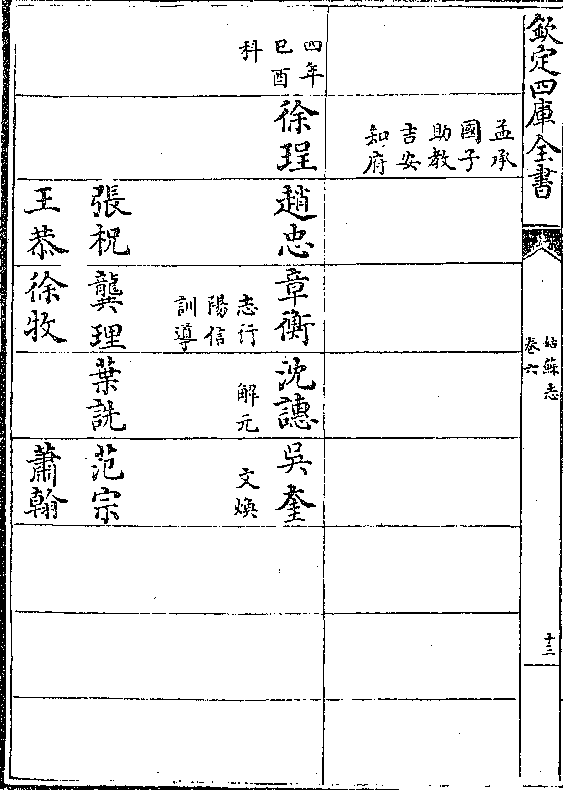 欽定四庫全書
姑蘇志
卷六
十三
孟承
國子
助教
吉安
知府
四年
己酉
科
徐珵
趙忠
章衡
志行
陽信
訓導
沈譓
解元
吳奎
文煥
張祝
龔理
葉詵
范宗
王恭
徐牧
蕭翰